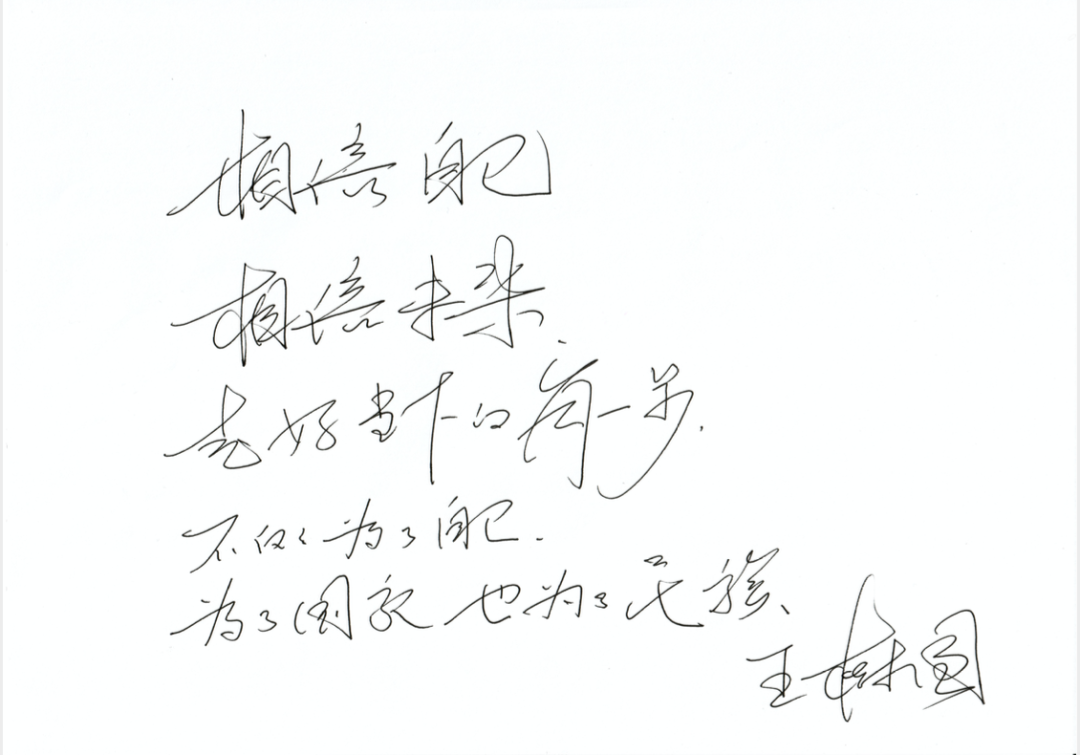 相信自己
相信未来.
走好当下的每一步.
不仅仅为了自己.
为了国家 也为了民族、
王